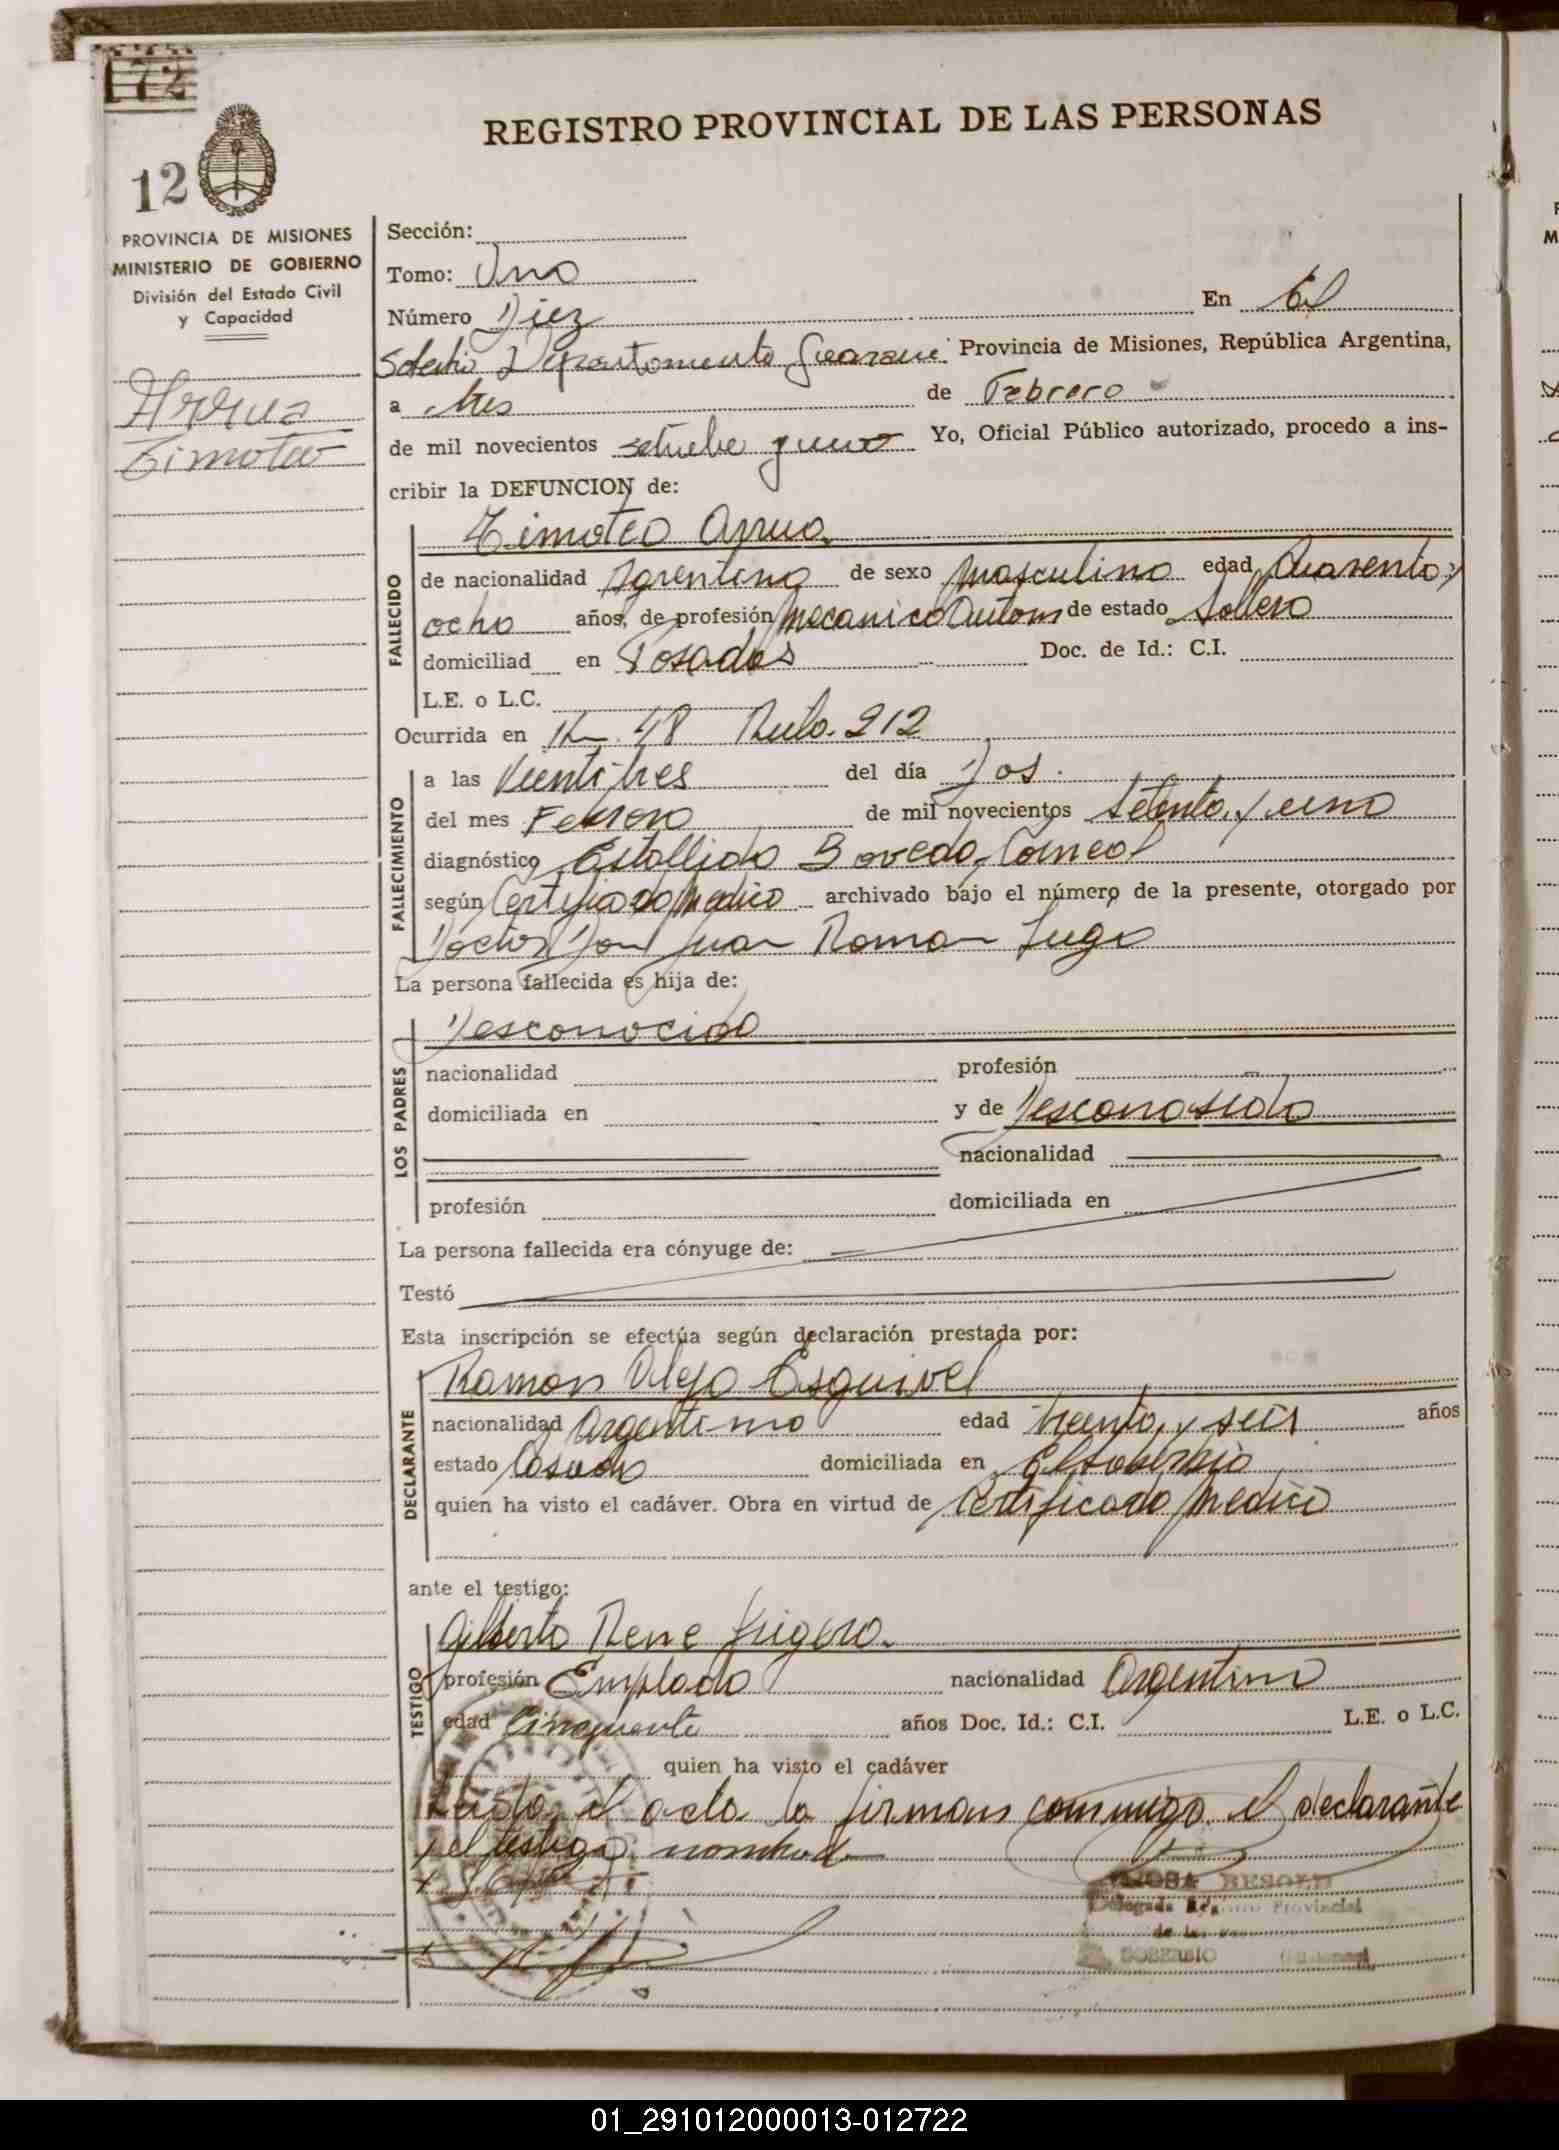 172
12
REGISTRO PROVINCIAL DE LAS PERSONAS
PROVINCIA DE MISIONES
MINISTERIO DE GOBIERNO
División del Estado Civil
y Capacidad
Arrua
Timoteo
Sección:
Tomo: Uno
Número Diez En El
Soberbio Departamento Guarani Provincia de Misiones, República Argentina,
a tres de Febrero
de mil novecientos setenta y uno Yo, Oficial Público autorizado, procedo a ins-
cribir la DEFUNCION de:
FALLECIDO
Timoteo Arrua.
de nacionalidad Argentina de sexo Masculino edad Cuarenta y
ocho años, de profesión Mecanico Autom de estado Soltero
domiciliad en Posadas Doc. de Id.: C.I.
L.E. o L.C.
Ocurrida en Km. 48 Ruta. 212
FALLECIMIENTO
a las Veintitres del día Dos.
del mes Febrero de mil novecientos Setenta y uno
diagnóstico Estallido Boveda Craneal
según Certificado Medico archivado bajo el número de la presente, otorgado por
Doctor Don Juan Roman Lugo
La persona fallecida es hija de:
LOS PADRES
Desconocido
nacionalidad profesión
domiciliada en y de Desconosida
nacionalidad
profesión domiciliada en
La persona fallecida era cónyuge de:
Testó
Esta inscripción se efectúa según declaración prestada por:
DECLARANTE
Ramon Alejo Esquivel
nacionalidad Argentino edad treinta y seis años
estado Casado domiciliada en El Soberbio
quien ha visto el cadáver. Obra en virtud de Certificado Medico
ante el testigo:
TESTIGO
Gilberto Rene
profesión Emplado nacionalidad Argentino
edad Cincuenta años Doc. Id.: C.I. L.E. o L.C.
quien ha visto el cadáver
el acta la firman conmigo el declarante
y el testigo nombrado
Delegada Provincial
de las
SOBERBIO
01_291012000013-012722